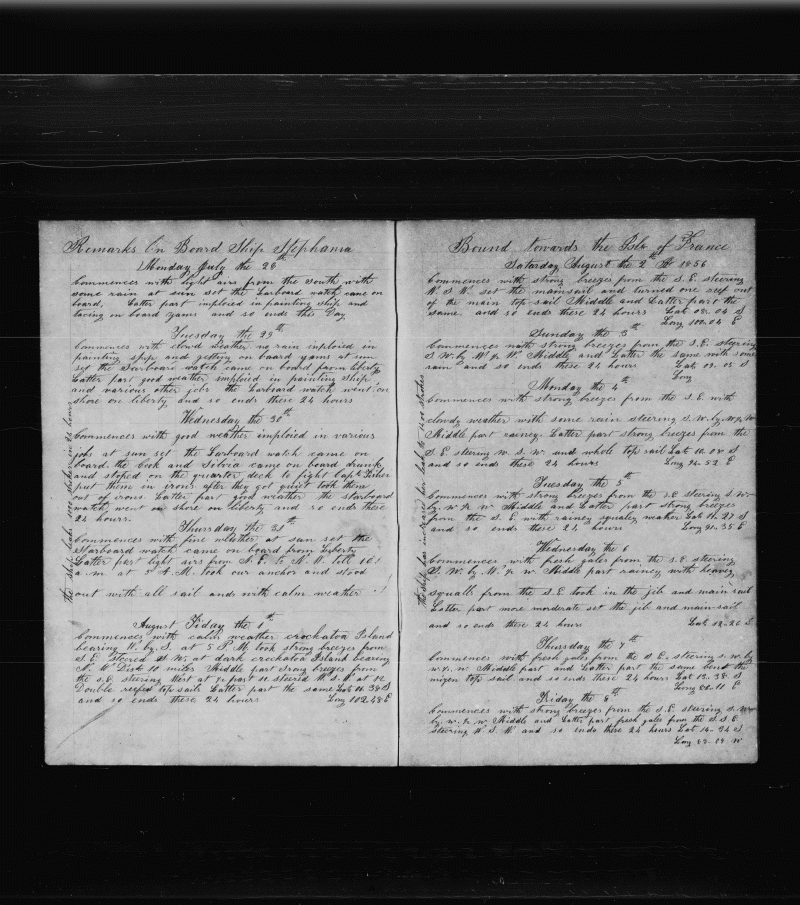 Remarks On Board Ship Stephania
Monday July the 28th
Commences with light airs from the South with
some rain at sun set the Larboard watch came on
board, Latter part imploied in painting ship and
taking on board yams and so ends this Day
Tuesday the 29th
Commences with clowd weather no rain imploied in
painting ship and getting on board yams at sun
set the Larboard watch came on board from liberty
Latter part good weather imploied in painting ship
and various other jobs the Larboard watch went on
shore on liberty and so ends these 24 hours
Wednesday the 30th
Commences with good weather imploied in various
jobs at sun set the Larboard watch came on
board the Cook and Solvia came on board drunk
and stoped on the quarter deck to fight Capt Fisher
put them in irons after they got quiet took them
out of irons Latter part good weather the starboard
watch went on shore on liberty and so ends these
24 hours.
Thursday the 31th
Commences with fine weather at sun set the
Starboard watch came on board from Liberty
Latter part light airs from N.E. to N.W. till
a.m. at 5 A.M. took our anchor and stood
out with all sail and with calm weather
August Friday the 1th
Commences with calm weather crockatoa Island
bearing W. by S. at 5 P.M. took strong breezes from
S.E. steered S.W. at dark crockatoa Island bearing
N.W. Dist 10 miles Middle part strong breezes from
the S.E. steering West at part steered W.S.W. at 12
Double reefed top sails Latter part the same Lat 11.34 S
and so ends these 24 hours Long 102.48 E
the ship leak 1000 strokes in 24 hours
Bound towards the Isle of France
Saturday August the 2th 1856
Commences with strong breezes from the S.E. steering
W.S.W. set the mainsail and turned one reef out
of the main top sail Middle and Latter part the
same. and so ends these 24 hours Lat 08.04 S
Long 100.04 E
Sunday the 3th
Commences with strong breezes from the S.E. steering
S.W. by W. ½ W. Middle and Latter the same with some
rain and so ends these 24 hours Lat 09.05 S
Long
Monday the 4th
Commences with strong breezes from the S.E. with
clowdy weather with some rain steering S.W. by W. ½ W.
Middle part rainey. Latter part strong breezes from the
S.E. steering W.S.W. und whole top sail Lat 10.08 S
and so ends these 24 hours Long 94.52 E
Tuesday the 5th
Commences with strong breezes from the S.E. steering S.W.
by W. ½ W. Middle and Latter part strong breezes
from the S.E. with rainey squaley weather Lat 11.27 S
and so ends these 24 hours Long 91.35 E
Wednesday the 6
Commences with fresh gales from the S.E. steering
S.W. by W. ½ W. Middle part rainey with heavey
squalls from the S.E. took in the jib and main sail
Latter part more moderate set the jib and main-sail
and so ends these 24 hours Lat 12-20 S
Thursday the 7th
Commences with fresh gales from the S.E. steering S.W. by
W. ½ W. Middle part and Latter part the same bent the
mizen top sail and so ends these 24 hours Lat 13.38 S
Long 86.11 E
Friday the 8th
Commences with strong breezes from the S.E. steering S.W.
by W. ½ W. Middle and Latter part fresh gales from the S.S.E.
steering W.S.W and so ends these 24 hours Lat 14-34 S
Long 83-09 W
the ship has increased her leak to 1500 strokes